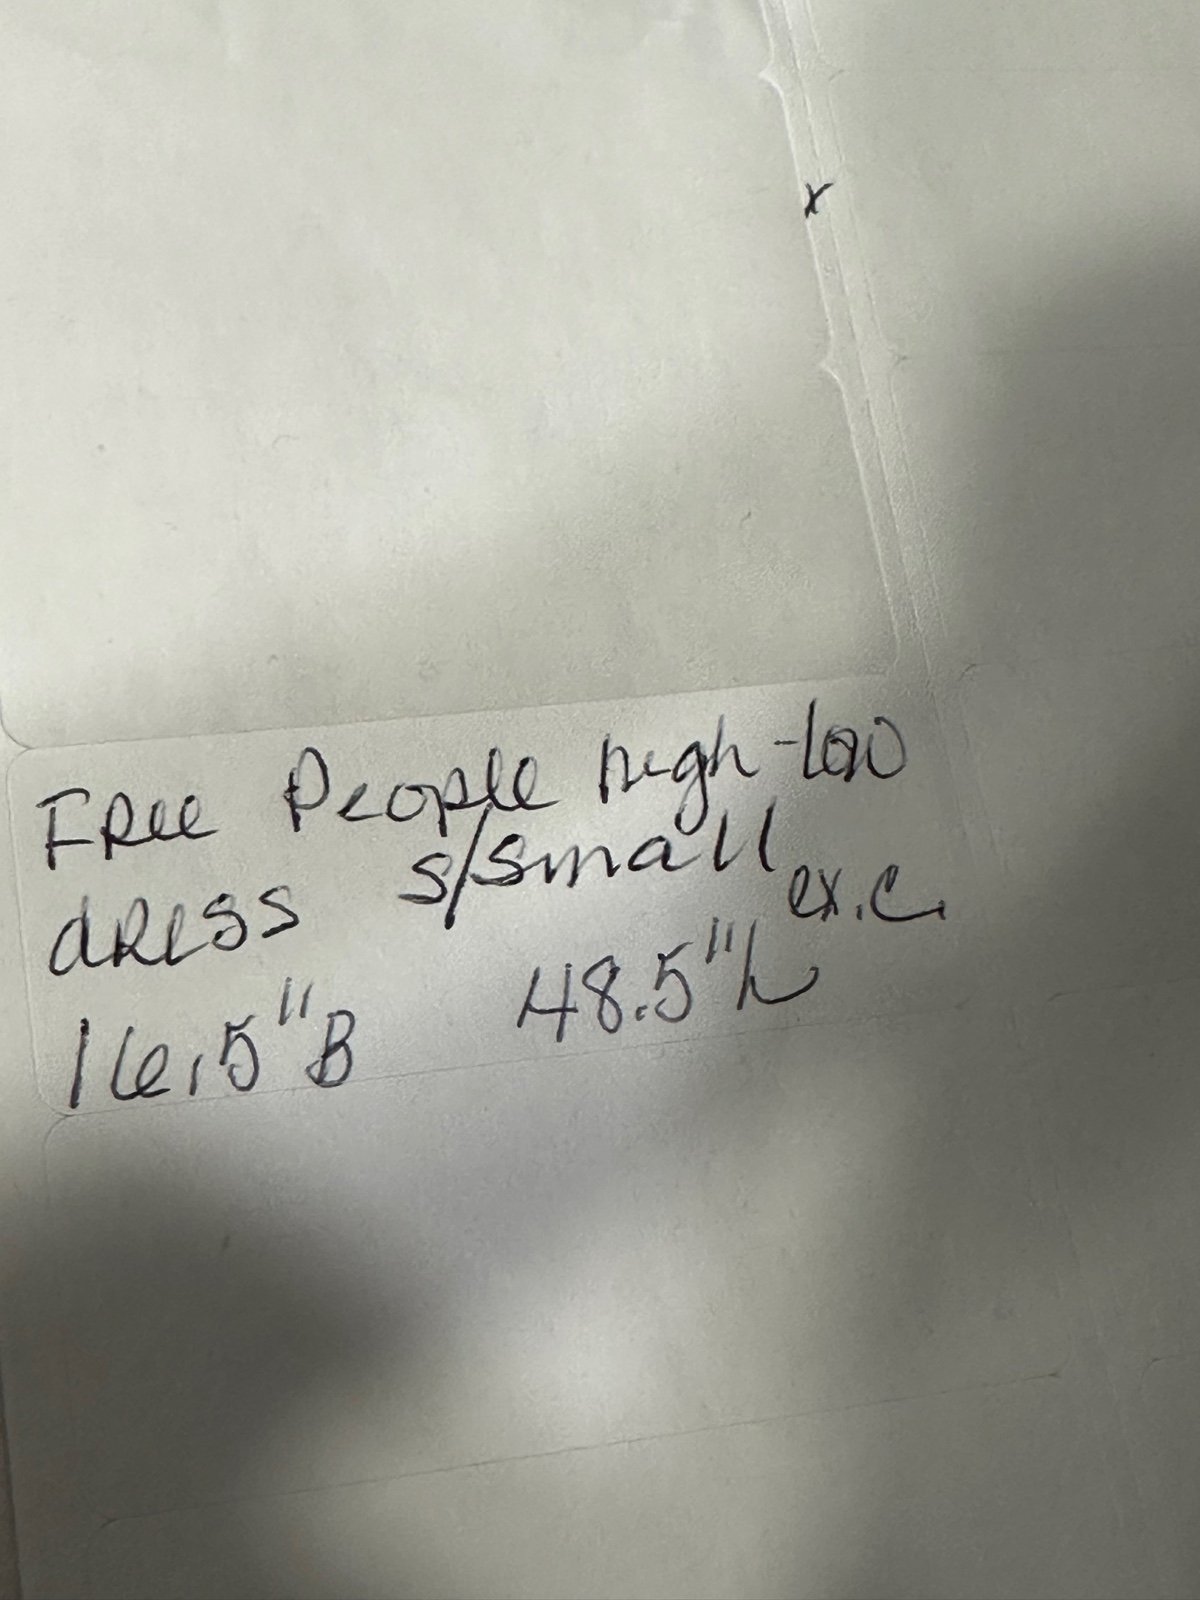 x
Free People high-low
dress s/small ex.c.
16.5"B 48.5"L